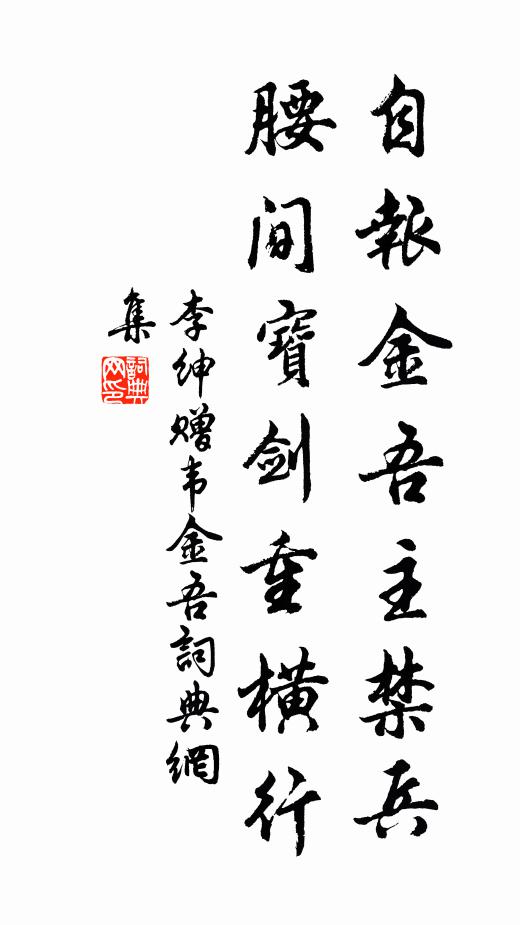 自報金吾主禁兵
腰間寶劍重橫行
李紳贈韦金吾詞典網
集
詞典
网印